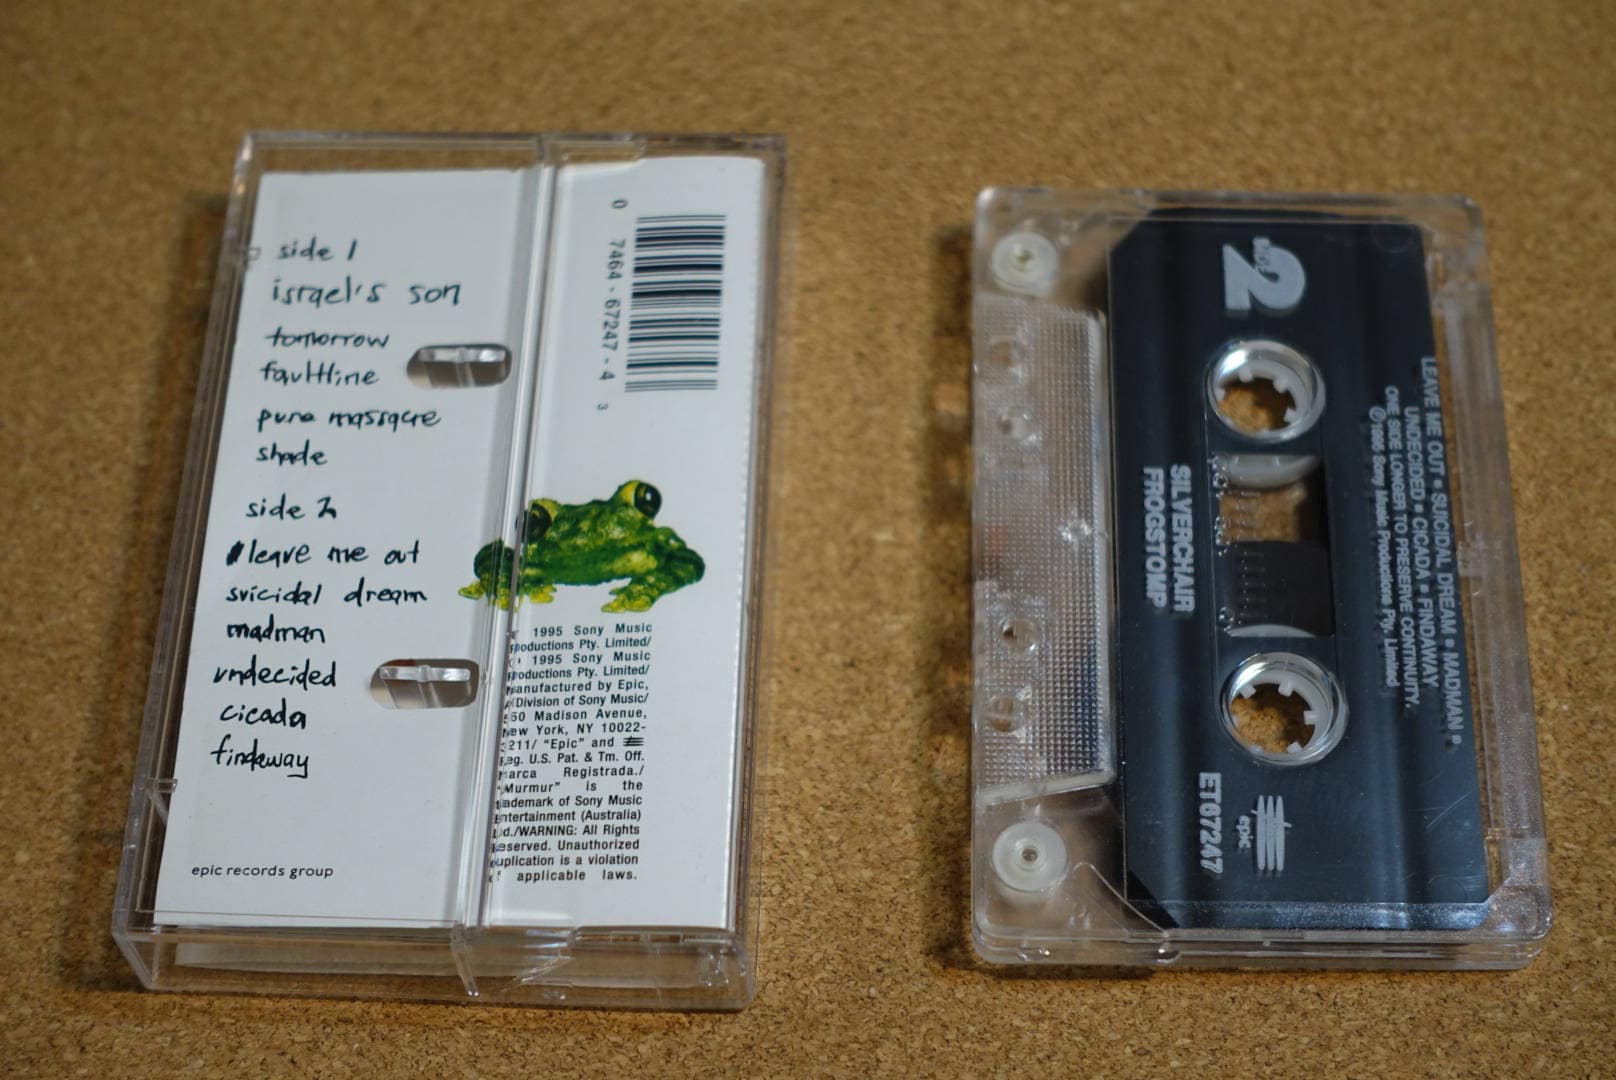 side 1
israel's son
tomorrow
faultline
pure massacre
shade
side 2
leave me out
suicidal dream
madman
undecided
cicada
findaway
epic records group
0 7464-67247-4 3
1995 Sony Music
Productions Pty. Limited/
1995 Sony Music
Productions Pty. Limited/
Manufactured by Epic,
A Division of Sony Music/
550 Madison Avenue,
New York, NY 10022-
3211/ “Epic” and
Reg. U.S. Pat. & Tm. Off.
Marca Registrada./
“Murmur” is the
trademark of Sony Music
Entertainment (Australia)
Ltd./WARNING: All Rights
Reserved. Unauthorized
duplication is a violation
of applicable laws.
SIDE 2
LEAVE ME OUT • SUICIDAL DREAM • MADMAN •
UNDECIDED • CICADA • FINDAWAY
ONE SIDE LONGER TO PRESERVE CONTINUITY.
℗1995 Sony Music Productions Pty. Limited
SILVERCHAIR
FROGSTOMP
epic
ET67247